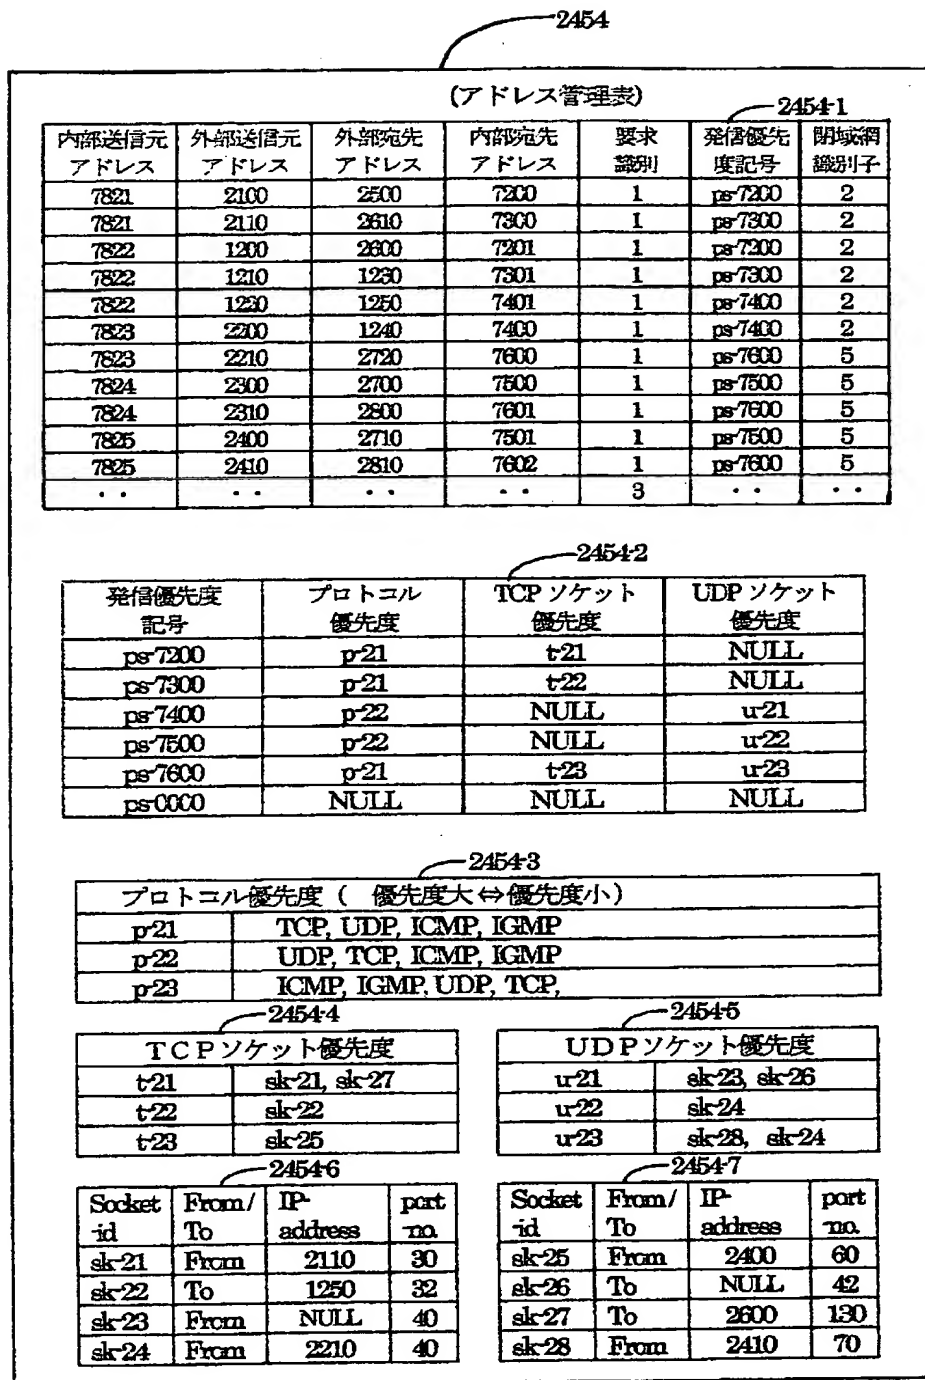 2454
(アドレス管理表)
2454-1
内部送信元 外部送信元 外部宛先 内部宛先 要求 発信優先 閉域網
アドレス アドレス アドレス アドレス 識別 度記号 識別子
7821 2100 2500 7200 1 ps-7200 2
7821 2110 2610 7300 1 ps-7300 2
7822 1200 2600 7201 1 ps-7200 2
7822 1210 1230 7301 1 ps-7300 2
7822 1220 1250 7401 1 ps-7400 2
7823 2200 1240 7400 1 ps-7400 2
7823 2210 2720 7600 1 ps-7600 5
7824 2300 2700 7500 1 ps-7500 5
7824 2310 2800 7601 1 ps-7600 5
7825 2400 2710 7501 1 ps-7500 5
7825 2410 2810 7602 1 ps-7600 5
・・ ・・ ・・ ・・ 3 ・・ ・・
2454-2
発信優先度 プロトコル TCPソケット UDPソケット
記号 優先度 優先度 優先度
ps-7200 p-21 t-21 NULL
ps-7300 p-21 t-22 NULL
ps-7400 p-22 NULL u-21
ps-7500 p-22 NULL u-22
ps-7600 p-21 t-23 u-23
ps-0000 NULL NULL NULL
2454-3
プロトコル優先度( 優先度大⇔優先度小)
p-21 TCP, UDP, ICMP, IGMP
p-22 UDP, TCP, ICMP, IGMP
p-23 ICMP, IGMP, UDP, TCP,
2454-4
TCPソケット優先度
t-21 sk-21, sk-27
t-22 sk-22
t-23 sk-25
2454-5
UDPソケット優先度
u-21 sk-23, sk-26
u-22 sk-24
u-23 sk-28, sk-24
2454-6
Socket From/ IP- port
-id To address no.
sk-21 From 2110 30
sk-22 To 1250 32
sk-23 From NULL 40
sk-24 From 2210 40
2454-7
Socket From/ IP- port
-id To address no.
sk-25 From 2400 60
sk-26 To NULL 42
sk-27 To 2600 130
sk-28 From 2410 70